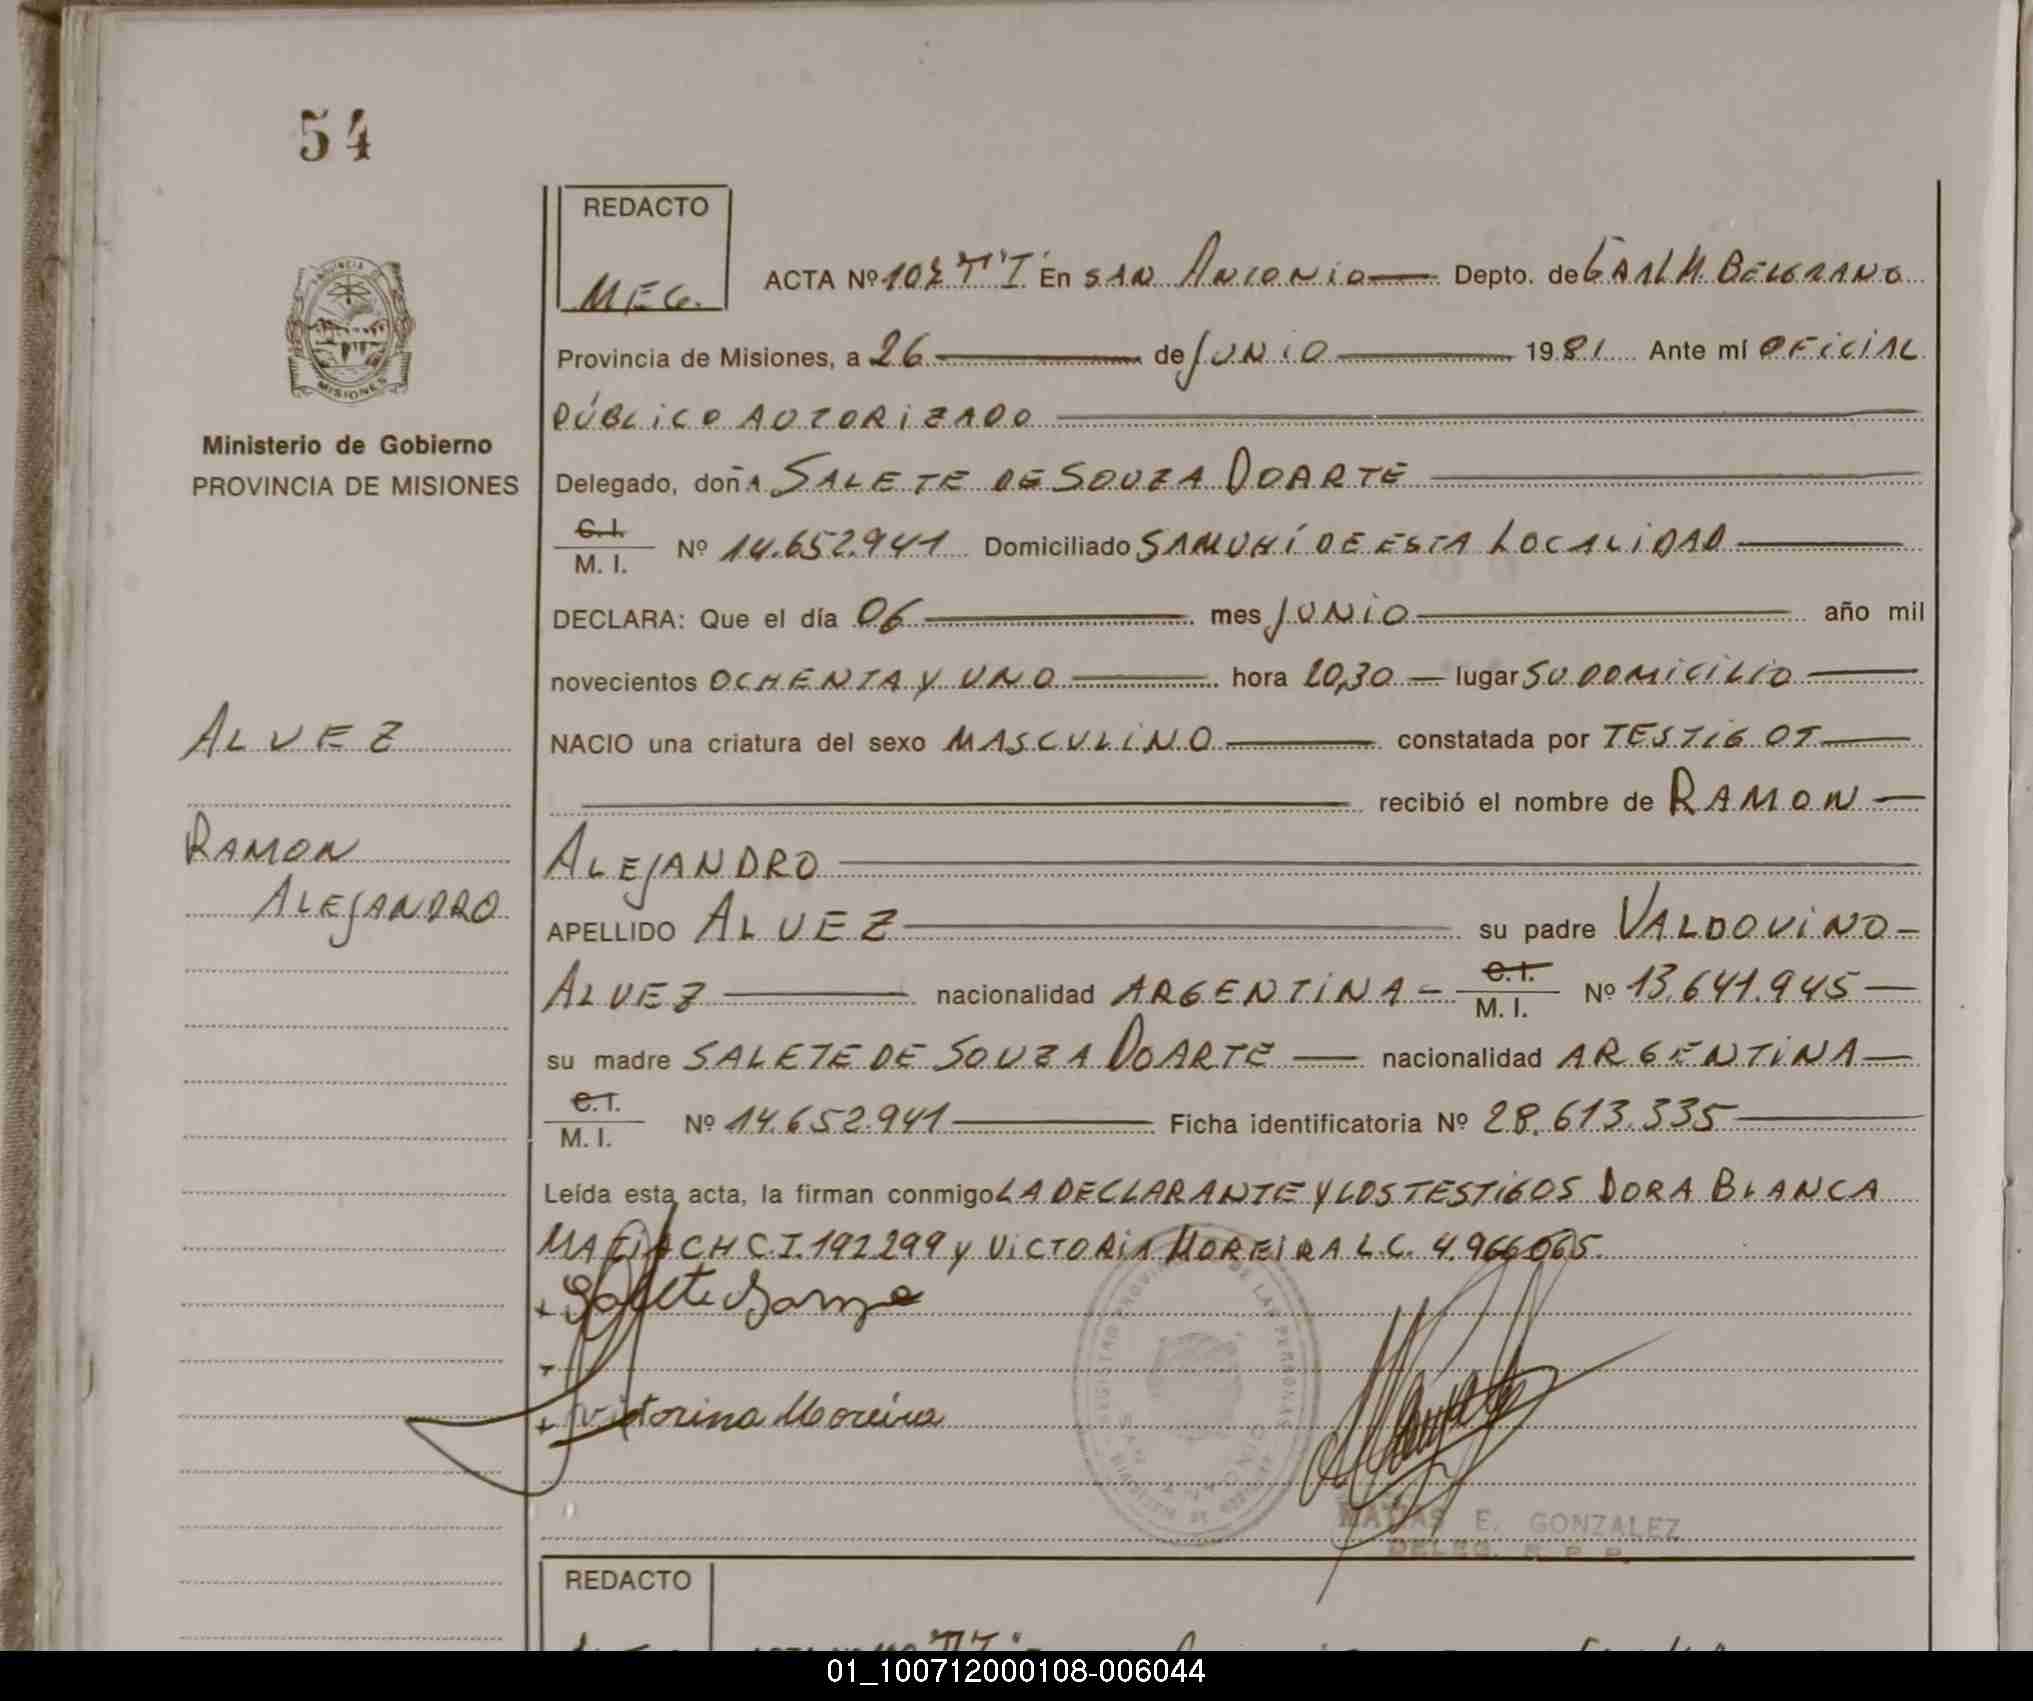 54
REDACTO
MEG.
ACTA Nº 102 T"I" En SAN ANTONIO Depto. de GRAL M. BELGRANO
Provincia de Misiones, a 26 de JUNIO 1981 Ante mí OFICIAL
PÚBLICO AUTORIZADO
PROVINCIA DE
MISIONES
Ministerio de Gobierno
PROVINCIA DE MISIONES
Delegado, doñA SALETE DE SOUZA DOARTE
C.I.
M. I. Nº 14.652.941 Domiciliado SAMUHÍ DE ESTA LOCALIDAD
DECLARA: Que el día 06 mes JUNIO año mil
novecientos OCHENTA Y UNO hora 20,30 lugar SU DOMICILIO
NACIO una criatura del sexo MASCULINO constatada por TESTIGOS
recibió el nombre de RAMON
ALEJANDRO
APELLIDO ALVEZ su padre VALDOVINO
ALVEZ nacionalidad ARGENTINA C.I. M. I. Nº 13.641.945
su madre SALETE DE SOUZA DOARTE nacionalidad ARGENTINA
C.I.
M. I. Nº 14.652.941 Ficha identificatoria Nº 28.613.335
Leída esta acta, la firman conmigo LA DECLARANTE Y LOS TESTIGOS DORA BLANCA
CH C.I. 192299 y VICTORIA MOREIRA L.C. 4.966065.
ALVEZ
RAMON
ALEJANDRO
Salete
Victorina Moreira
MATIAS E. GONZALEZ
DELEG. R. P. P.
REDACTO
01_100712000108-006044